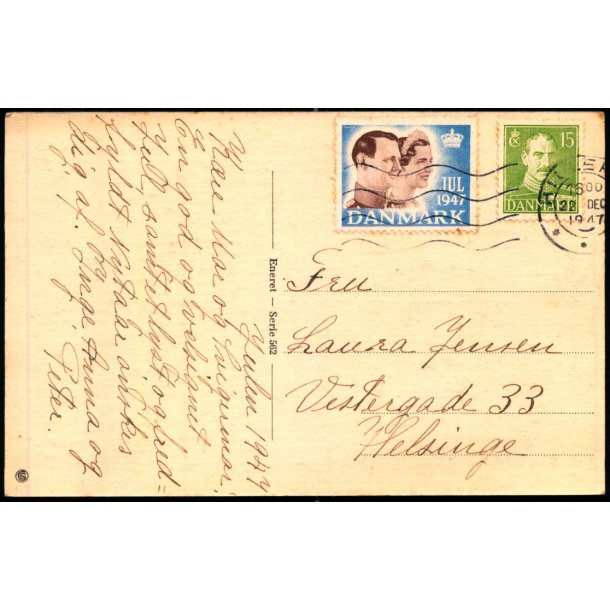 Julen 1947
Kære Mor og Ingemor.
En god og velsignet
Jul, samt et lyst og fred-
fyldt Nytaar ønskes
Dig af
Inge, Anna og
Peter.
Eneret – Serie 562
JUL
1947
DANMARK
15
DANMARK
22 DEC
1947
Fru
Laura Jensen
Vestergade 33
Helsinge